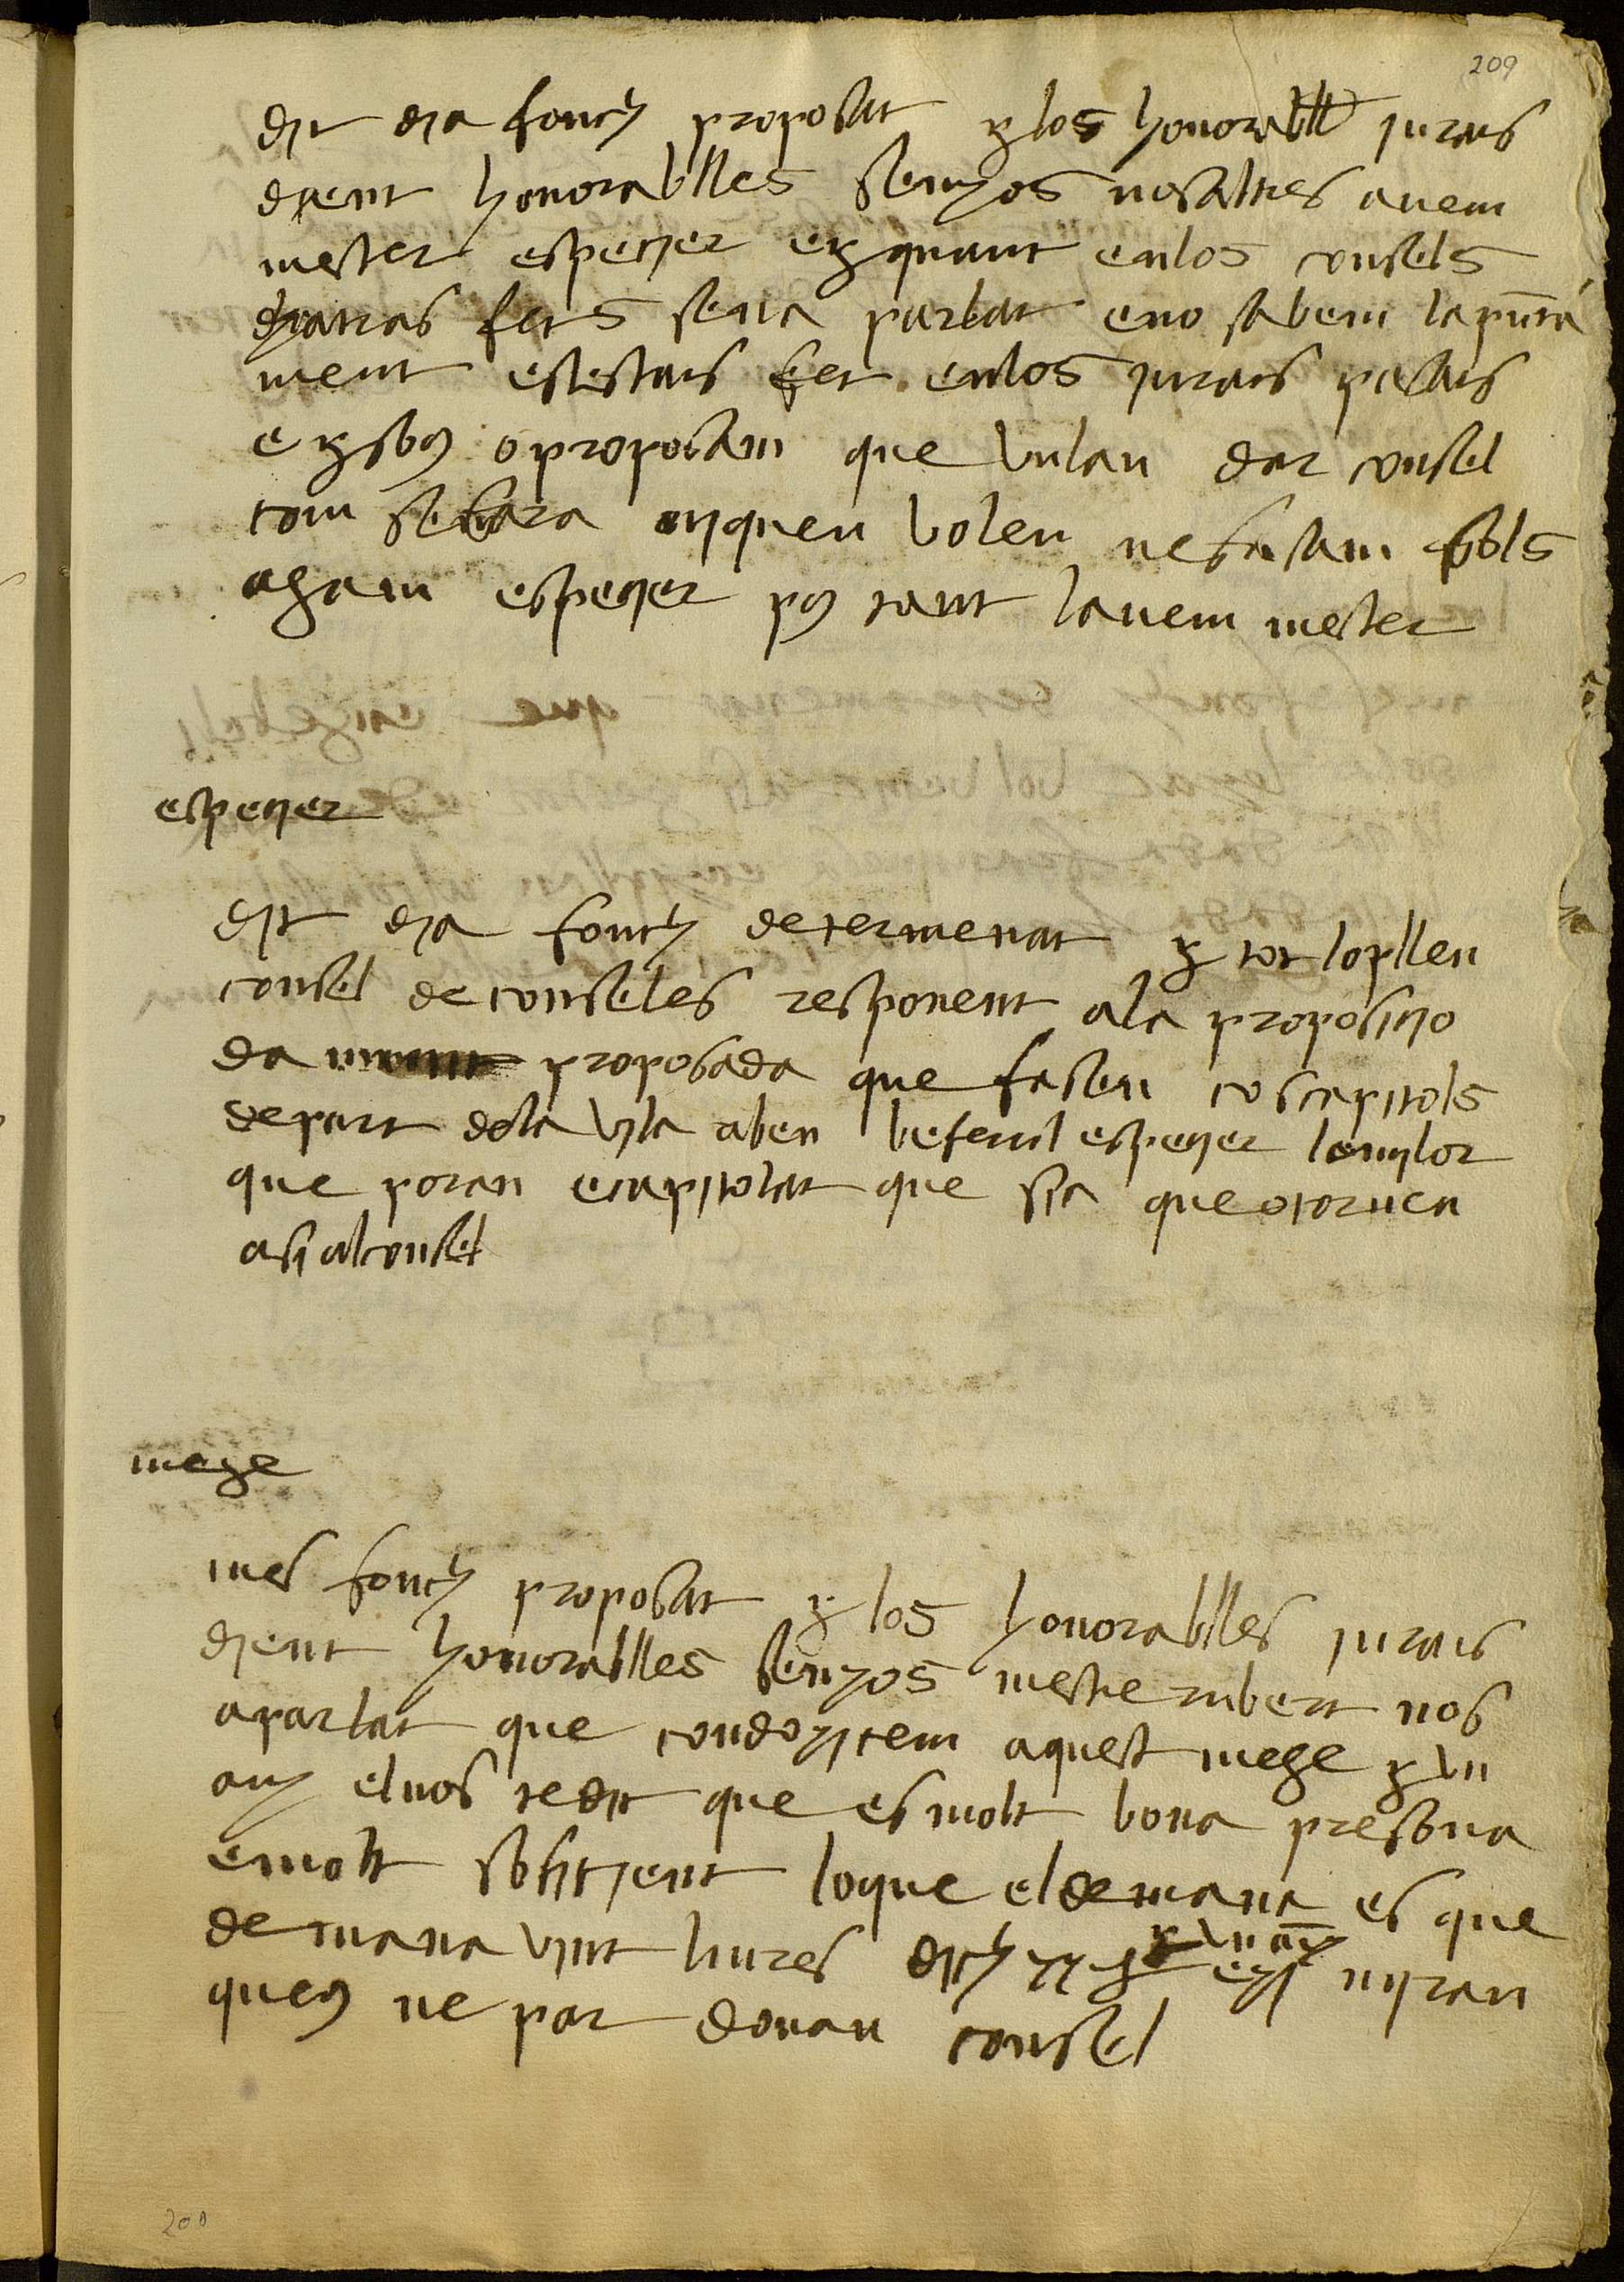 209
dit dia fonch proposat per los honorablles jurats
dient honorablles senyos nosaltres avem
mester especier e per quant en los consels
pasats fets sena parlat e no sabem lapunta
ment es estats fet en los jurats pasats
e per so us o proposam que vulau dar consel
com se fara ni quen voleu ne fasam sols
agam especier pus tant lavem mester
especier
dit dia fonch determenat per tot lo pllen
consel de conseles responent a la proposicio
da proposada que fasen los capitols
de part de la vila a ben benefici especier lo mylor
que poran e capitolat que sia que o tornen
asi al consel
mege
mes fonch proposat per los honorablles jurats
dient honorablles senyos mestre rubert nos
a parlat que condoysem aquest mege per un
any el nos te dit que es molt bona presona
e molt sofisient lo que el demana es que
per un any
demana vint liures miran
queus ne par donau consel
200